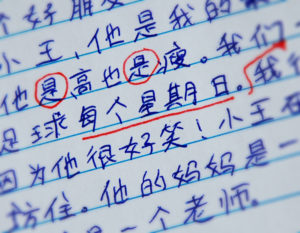 个好朋
小王,他是我的
他是高也是瘦。我们
足球每个星期日。我
因为他很好笑!小王在
坊住。他的妈妈是一
是一个老师。